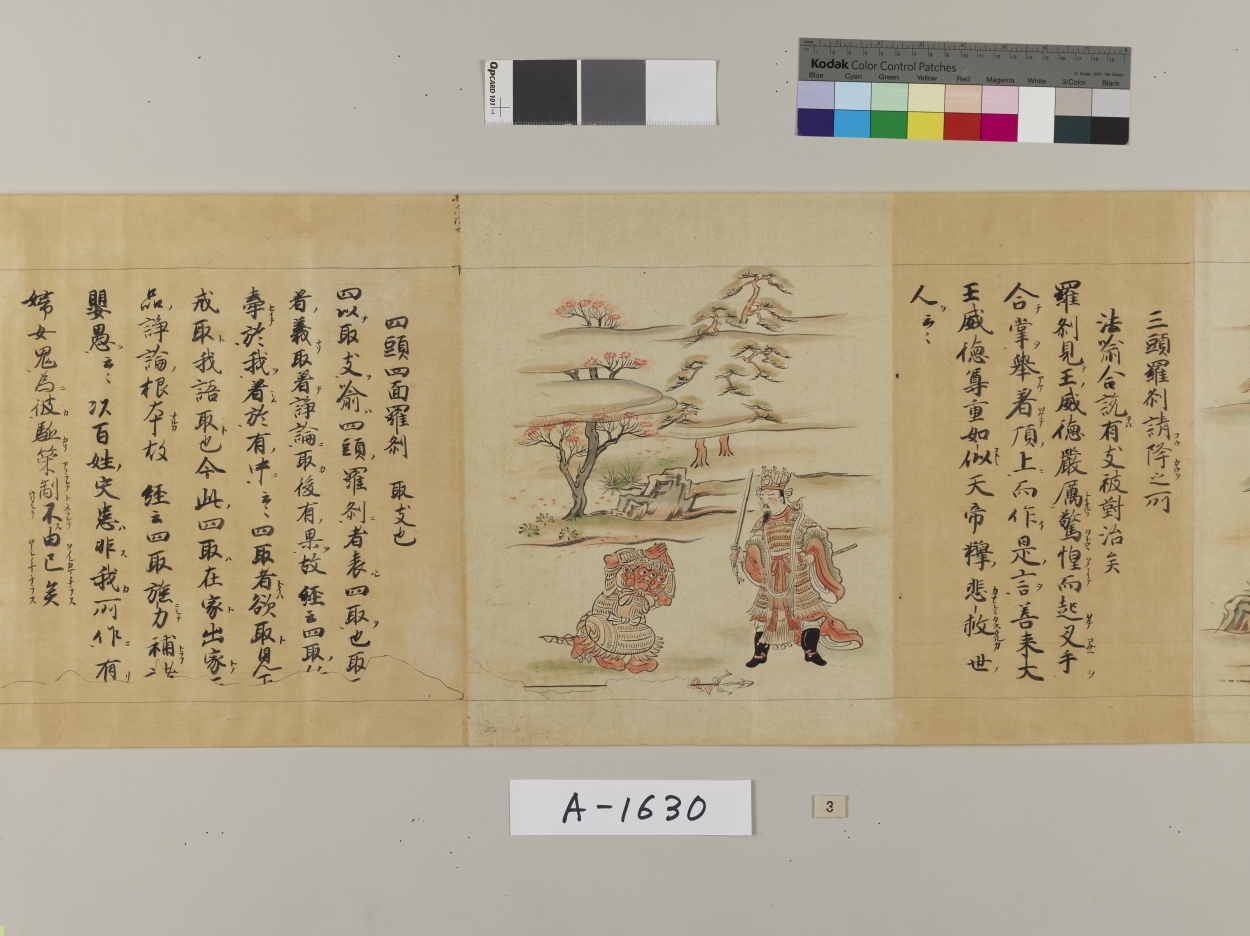 三頭羅刹請降之所
法喩合説有支被對治矣
羅刹見王威德嚴厲驚惶而起叉手
合掌擧著頂上而作是言善来大
王威德尊重如似天帝釋悲救世
人云々
四頭四面羅刹 取支也
四以取支喩四頭羅刹者表四取也取
者義取著諍論取後有果故經云四取
牽於我著於有中云々四取者欲取見
戒取我語取也今此四取在家出家
品諍論根本故 經云四取 力補
嬰愚云々次百姓 非我所作有
婦女鬼為彼駈策制不由已矣
QPCARD 101
Kodak Color Control Patches
Blue Cyan Green Yellow Red Magenta White 3/Color Black
A-1630
3